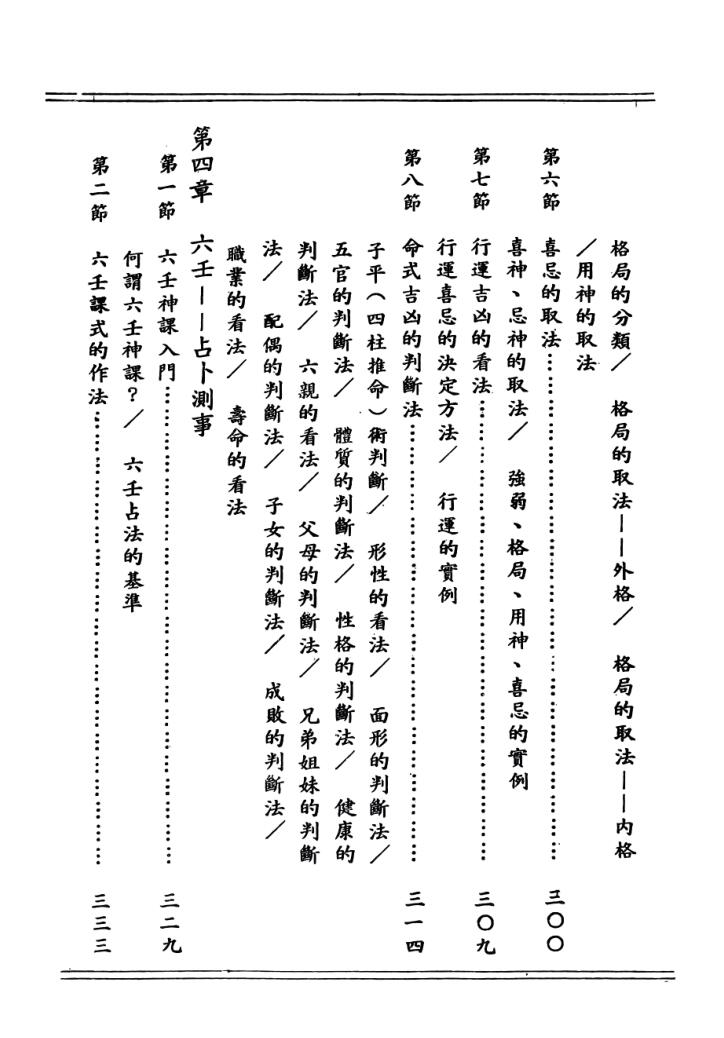 格局的分類／　格局的取法——外格／　格局的取法——內格
／用神的取法
第六節　喜忌的取法……………………………………三〇〇
喜神、忌神的取法／　強弱、格局、用神、喜忌的實例
第七節　行運吉凶的看法……………………………………三〇九
行運喜忌的決定方法／　行運的實例
第八節　命式吉凶的判斷法……………………………………三一四
子平（四柱推命）術判斷／　形性的看法／　面形的判斷法／
五官的判斷法／　體質的判斷法／　性格的判斷法／　健康的
判斷法／　六親的看法／　父母的判斷法／　兄弟姐妹的判斷
法／　配偶的判斷法／　子女的判斷法／　成敗的判斷法／
職業的看法／　壽命的看法
第四章　六壬——占卜測事
第一節　六壬神課入門……………………………………三二九
何謂六壬神課？／　六壬占法的基準
第二節　六壬課式的作法……………………………………三三三